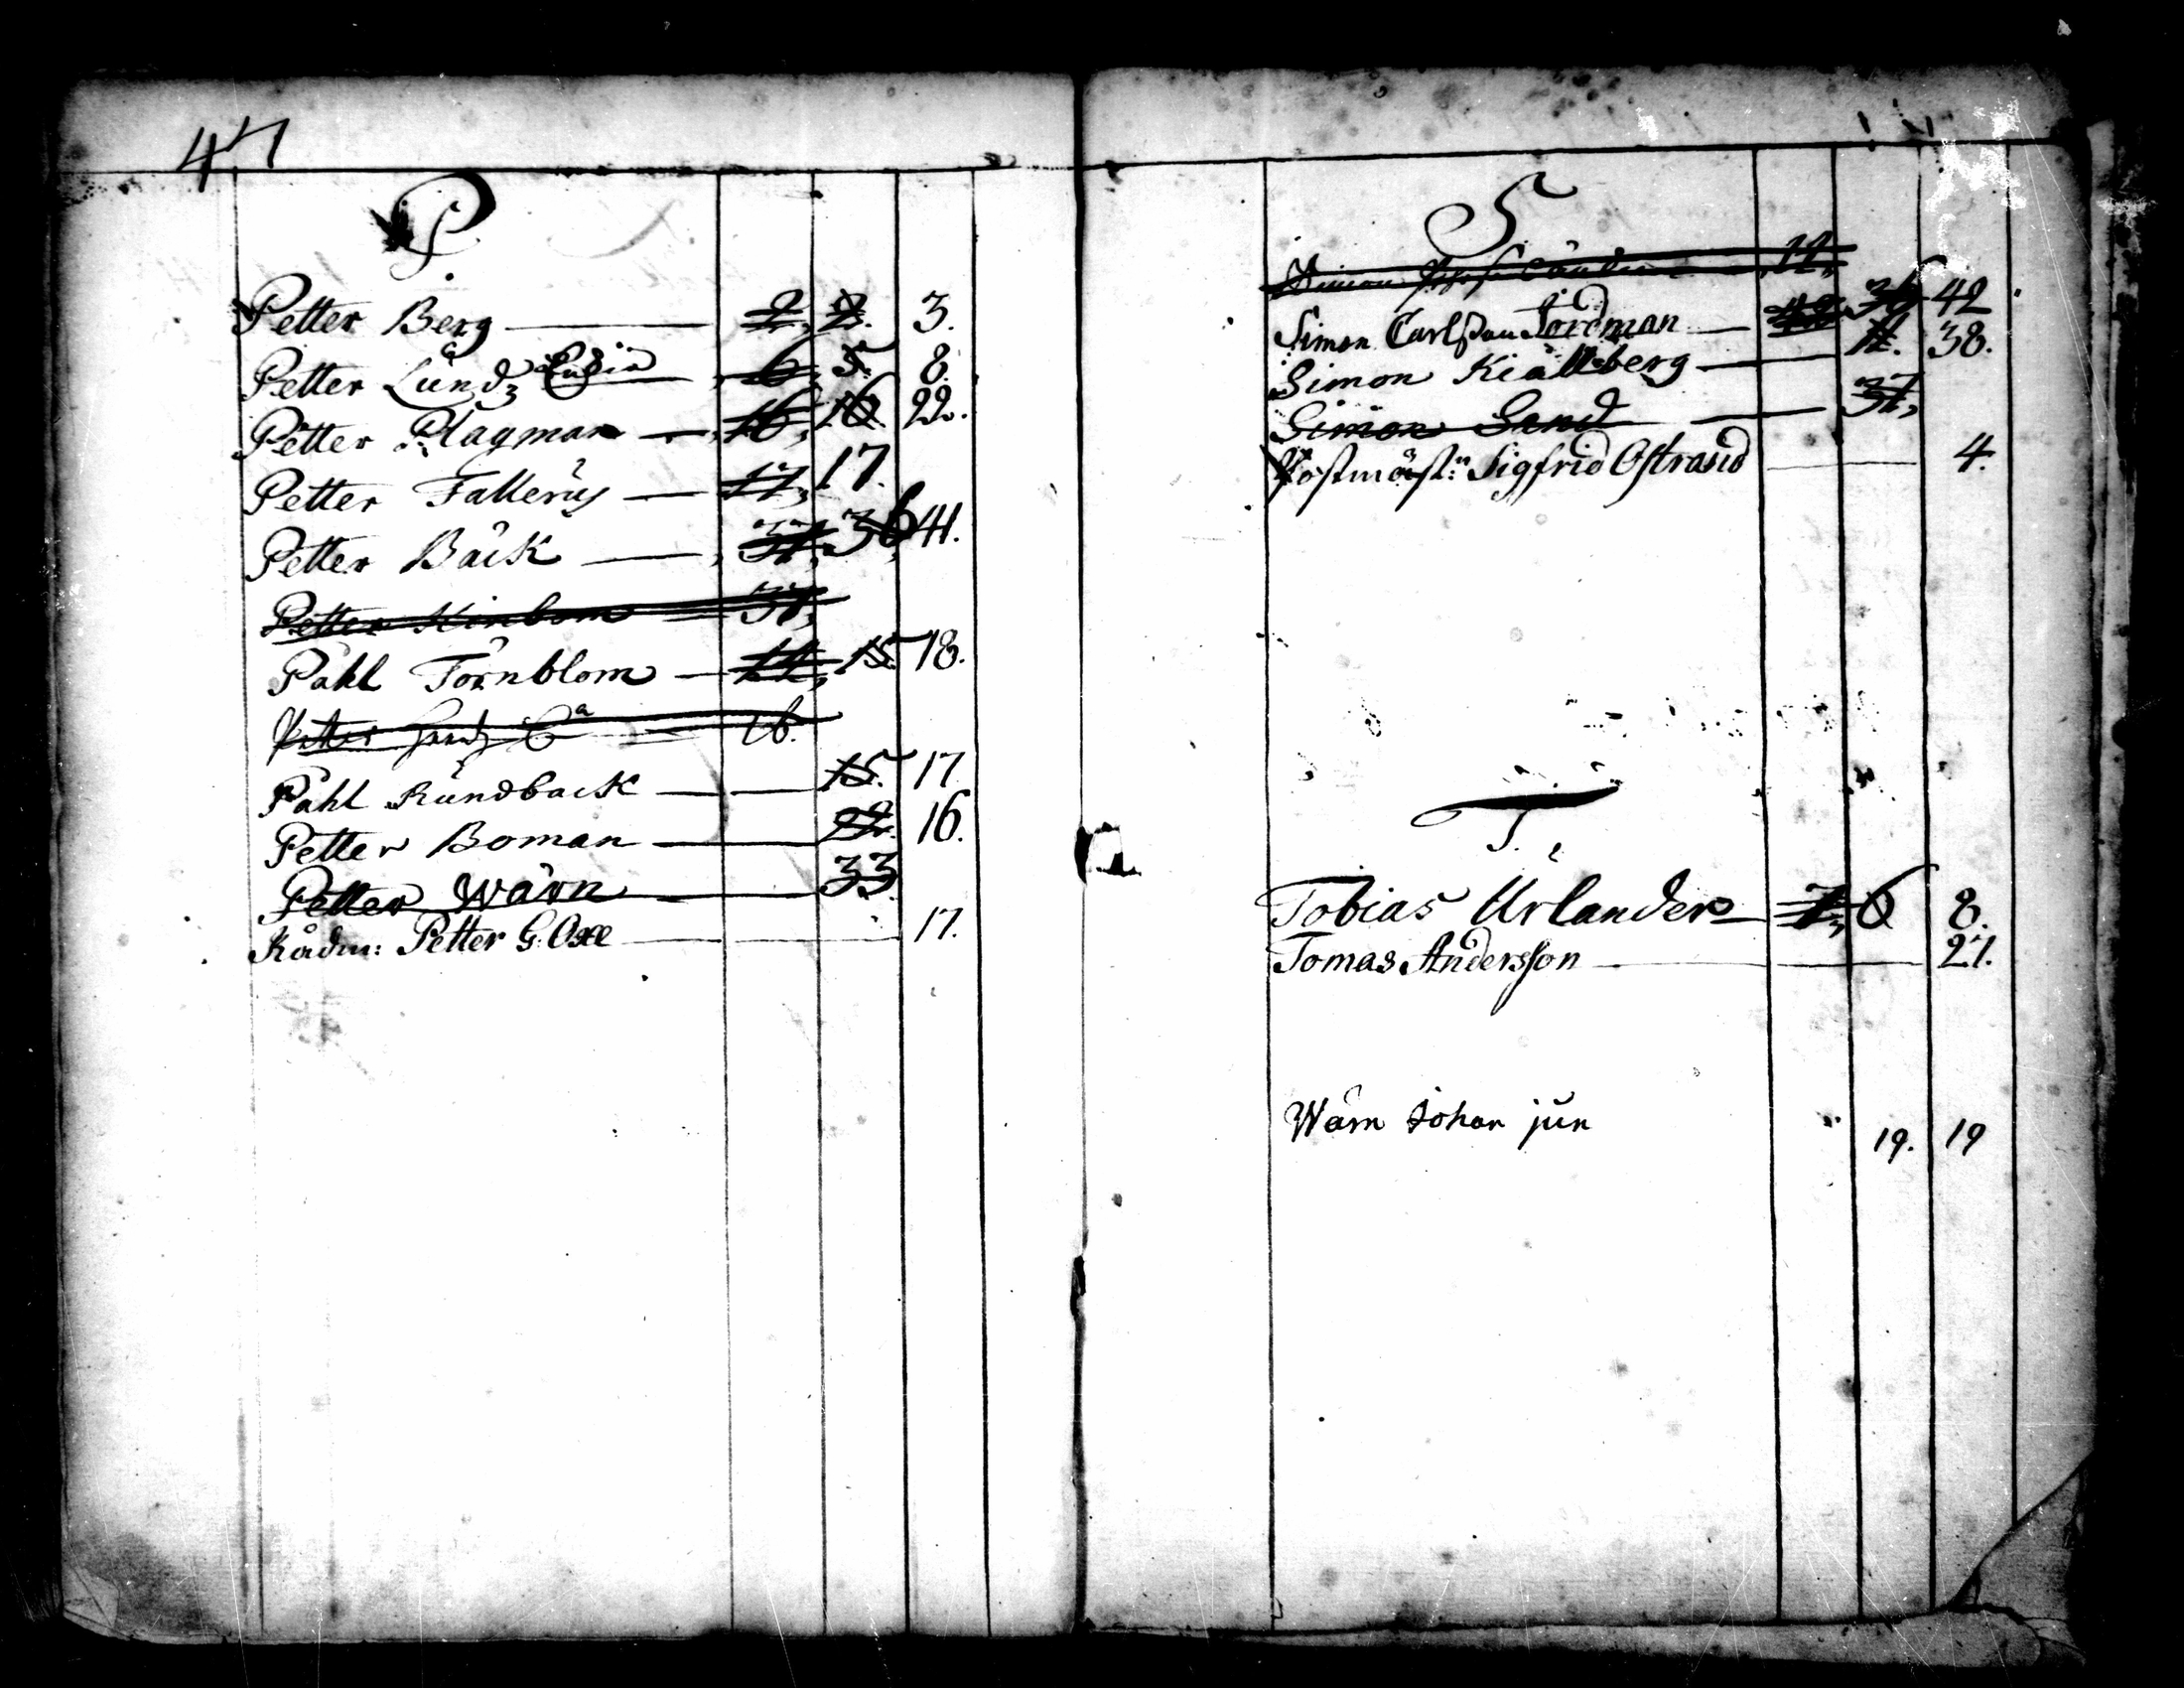 47
P
Petter Berg 2. 2. 3.
Petter Lundz 6. 5. 8.
Petter Plagman 16. 16. 22.
Petter Fallerus 17. 17.
Petter Bäck 37. 36 41.
Petter 37.
Påhl Törnblom 14. 15. 18.
Petter 16.
Påhl Rundback 15. 17
Petter Boman 22. 16.
Petter Wärn 33
Rådm: Petter G. Oxe 17.
S
Simon 11.
Simon Carlsson Nordman 36 42
Simon Kiällberg 11. 38.
Simon Sand 37.
Postmäst: Sigfrid Ostrand 4.
T.
Tobias Urlander 7. 6 8.
Tomas Andersson 27.
Wärn Johan jun 19. 19